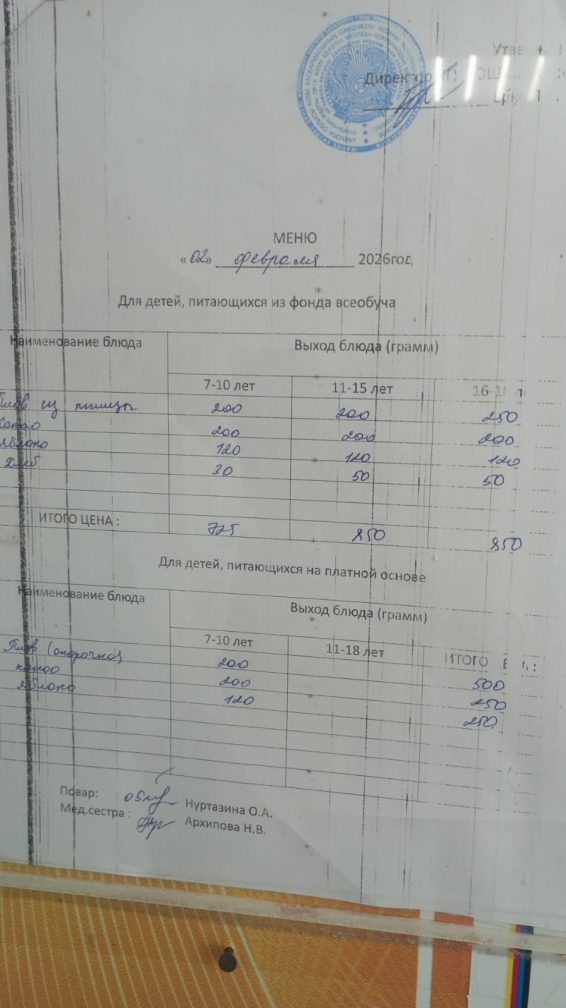 Директор
МЕНЮ
«02» февраля 2026год,
Для детей, питающихся из фонда всеобуча
Наименование блюда Выход блюда (грамм)
7-10 лет 11-15 лет 16-1
Плов из птицы 200 200 250
Какао 200 200 200
яблоко 120 120 120
хлеб 30 50 50
ИТОГО ЦЕНА : 725 850 850
Для детей, питающихся на платной основе
Наименование блюда Выход блюда (грамм)
7-10 лет 11-18 лет ИТОГО
Плов (окорочка) 200 500
какао 200 250
яблоко 120 250
Повар: Нуртазина О.А.
Мед.сестра : Архипова Н.В.